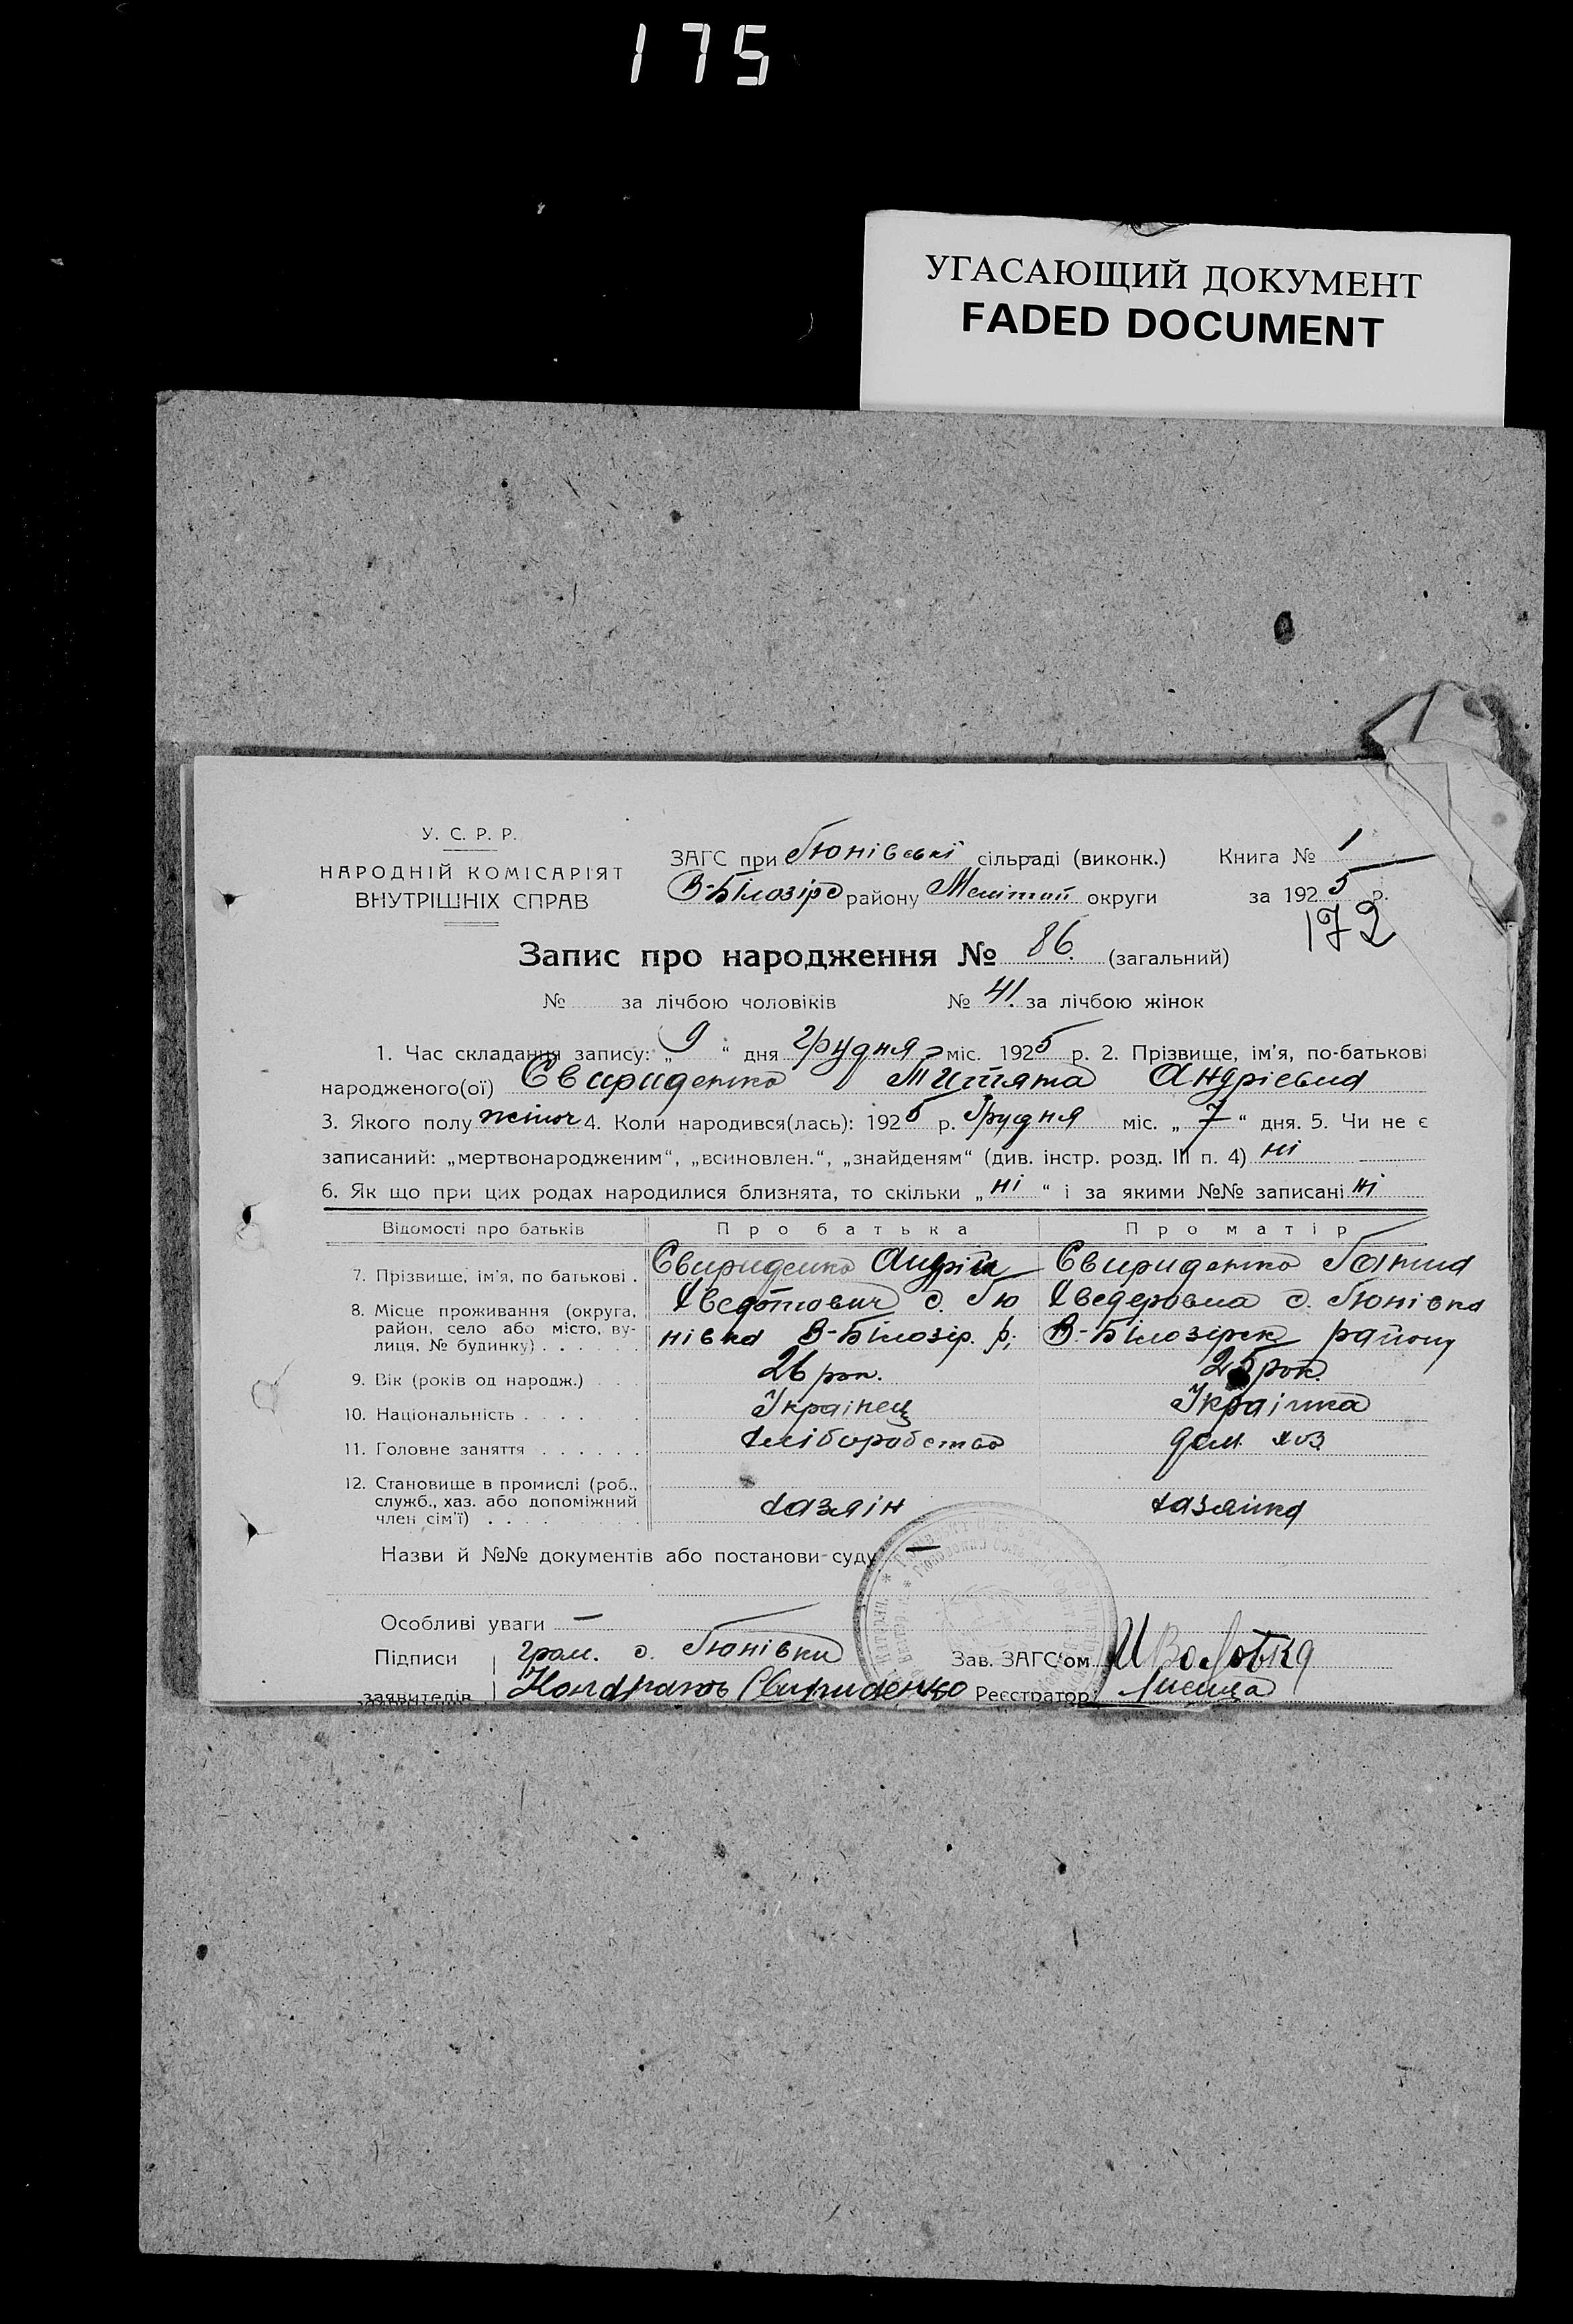 175
УГАСАЮЩИЙ ДОКУМЕНТ
FADED DOCUMENT
У. С. Р. Р.
НАРОДНІЙ КОМІСАРІЯТ
ВНУТРІШНІХ СПРАВ
ЗАГС при Гюнівські сільраді (виконк.)
В-Білозірс району Мелітоп округи
Книга № 1
за 1925 р.
172
Запис про народження № 86. (загальний)
№ за лічбою чоловіків № 41. за лічбою жінок
1. Час складання запису: „9“ дня Грудня міс. 1925 р. 2. Прізвище, ім'я, по-батькові
народженого(ої) Свириденко Андрієвна
3. Якого полу жіноч 4. Коли народився(лась): 1925 р. Грудня міс. „7“ дня. 5. Чи не є
записаний: „мертвонародженим“, „всиновлен.“, „знайденям“ (див. інстр. розд. III п. 4) ні
6. Як що при цих родах народилися близнята, то скільки „ні“ і за якими №№ записані ні
Відомості про батьків Про батька Про матір
7. Прізвище, ім'я, по батькові . Свириденко Андрій Свириденко Ганна
8. Місце проживання (округа, Хведотович с. Гю Хведеровна с. Гюнівка
район, село або місто, ву- нівка В-Білозір. р; В-Білозірск району
лиця, № будинку) . . . . . .
9. Вік (років од народж.) . . 26 рок. 25 рок.
10. Національність . . . . . Українец Українка
11. Головне заняття . . . . . . хліборобство дом. хоз
12. Становище в промислі (роб.,
служб., хаз. або допоміжний хазяїн хазяйка
член сім'ї) . . . .
Назви й №№ документів або постанови суду —
Особливі уваги —
Підписи гром. с. Гюнівки Зав. ЗАГС'ом
заявителів Кондрать Свириденко Реєстратор: